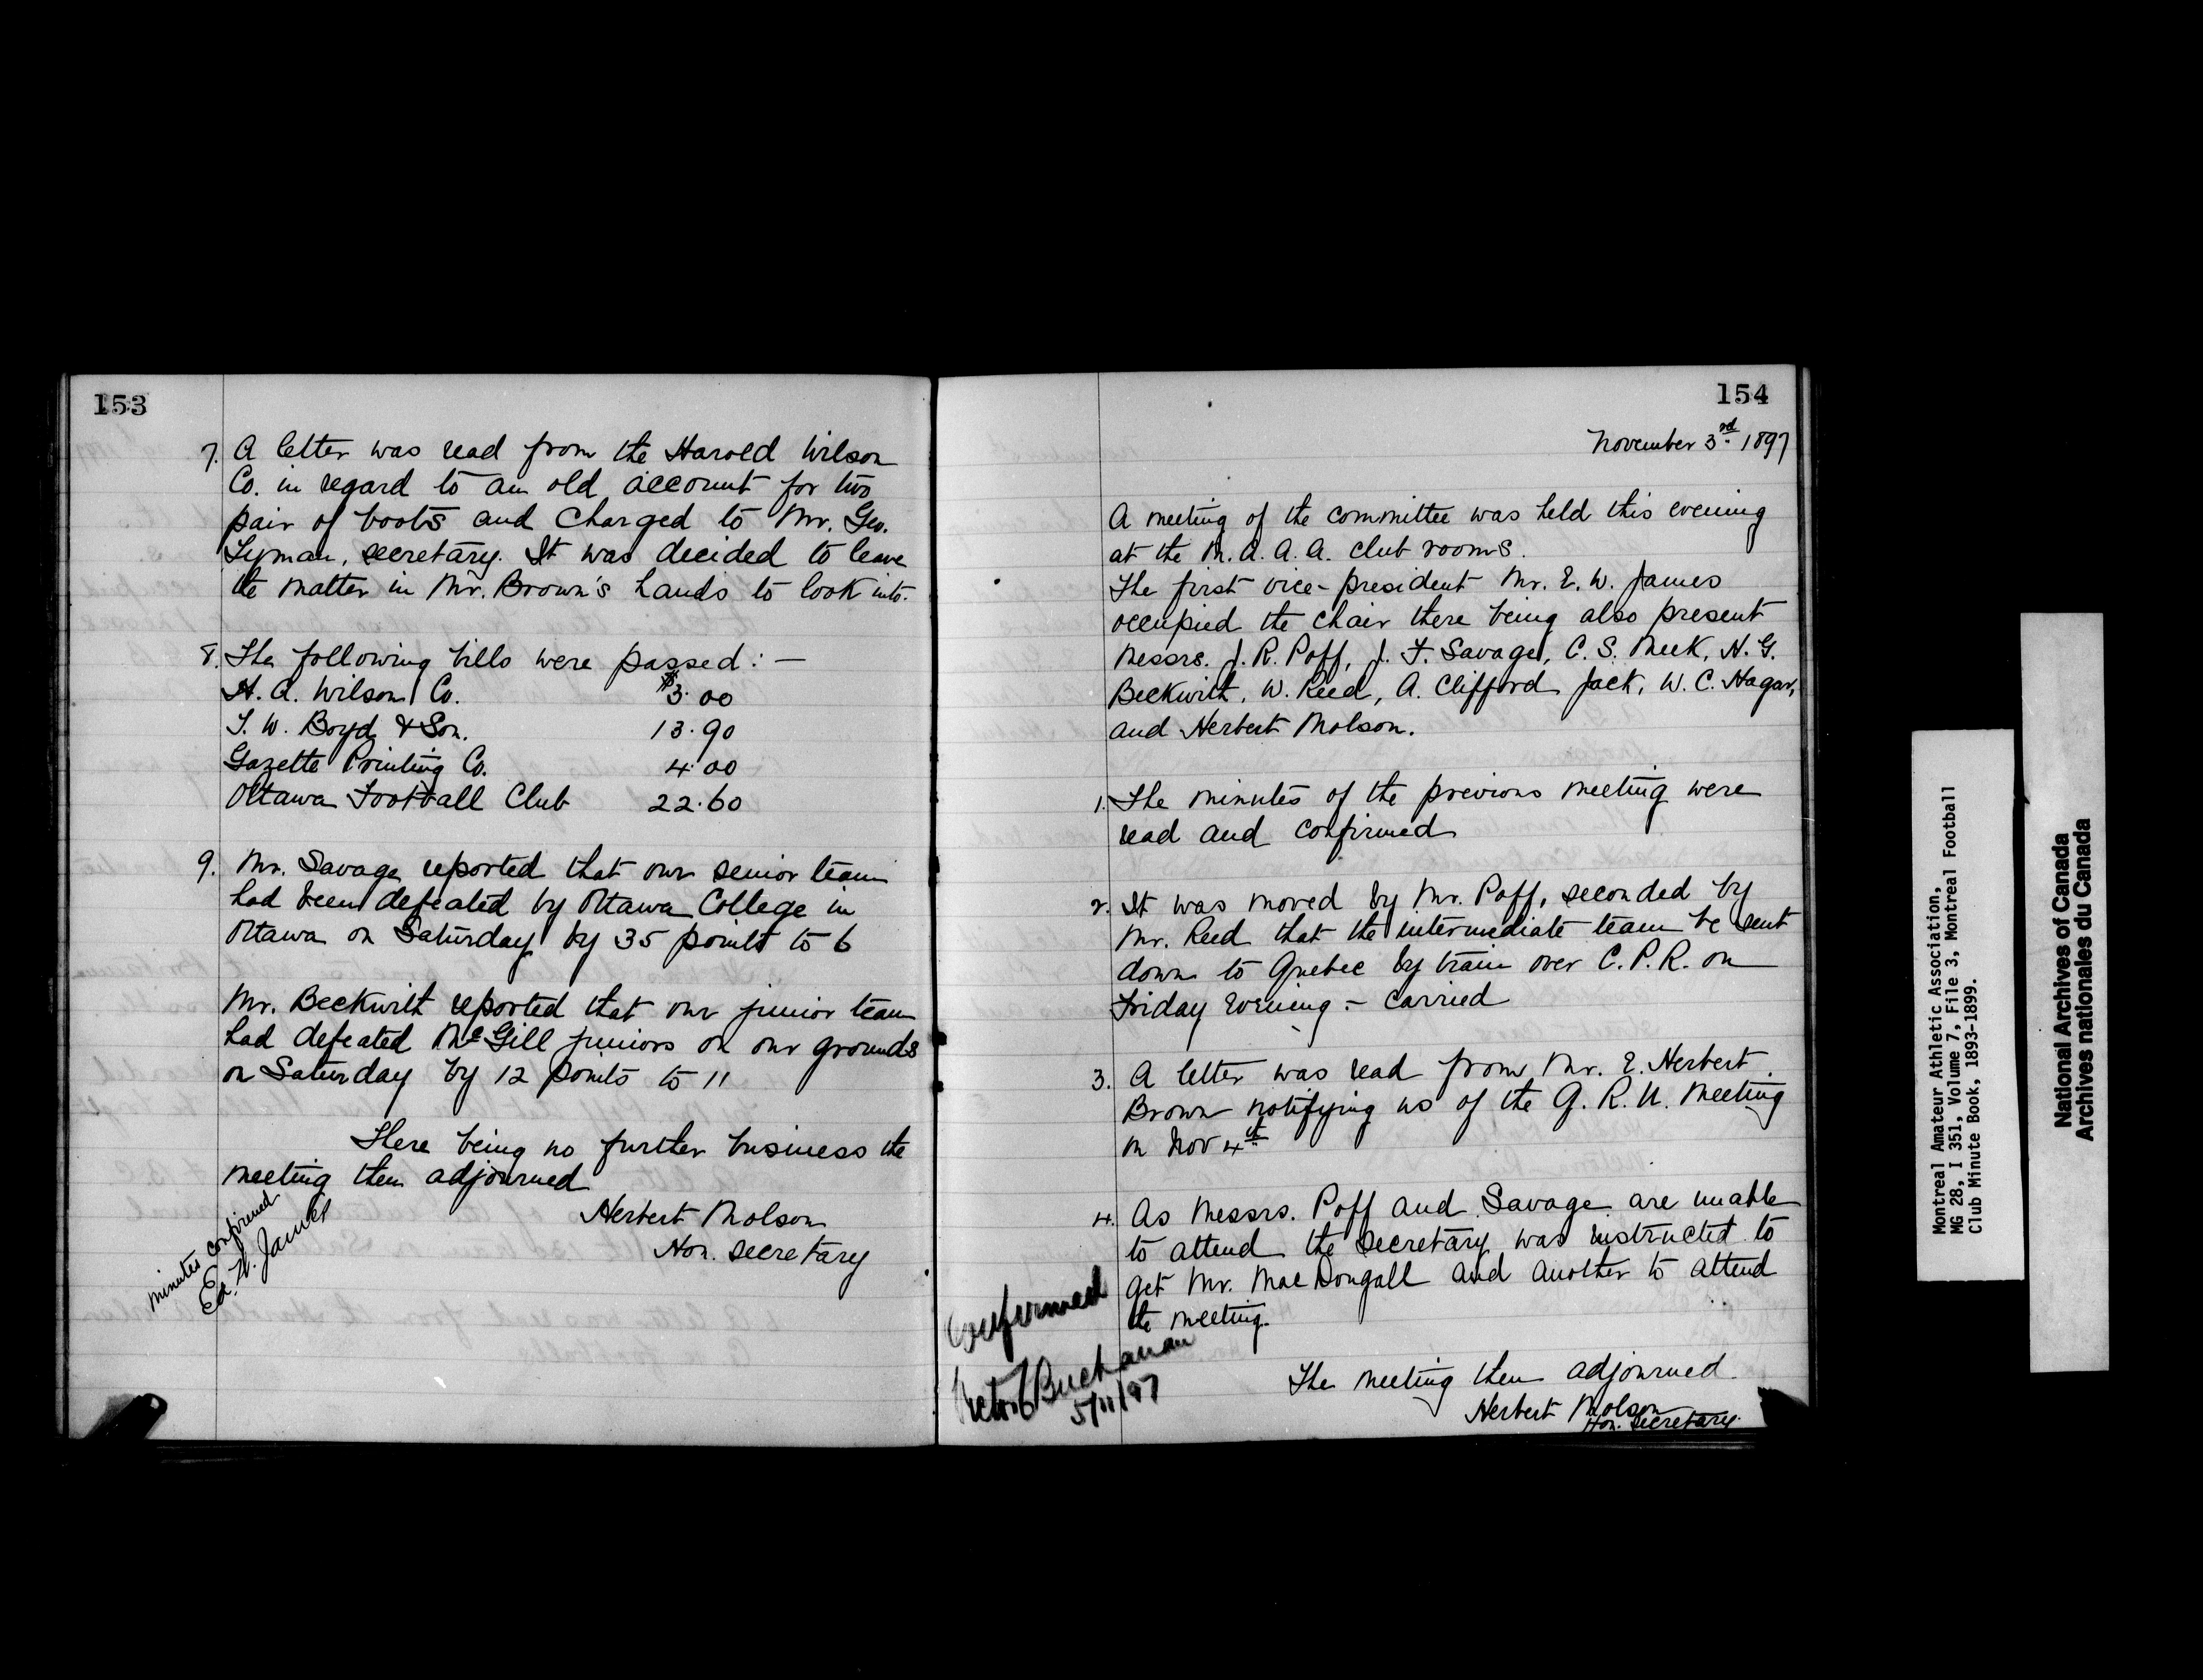 153
7. A letter was read from the Harold Wilson
Co. in regard to an old account for two
pair of boots and charged to Mr. Geo.
Lyman, secretary. It was decided to leave
the matter in Mr. Brown's hands to look into.
8. The following bills were passed: —
H. A. Wilson Co. $3.00
T. W. Boyd & Son. 13.90
Gazette Printing Co. 4.00
Ottawa Football Club 22.60
9. Mr. Savage reported that our senior team
had been defeated by Ottawa College in
Ottawa on Saturday by 35 points to 6
Mr. Beckwith reported that our junior team
had defeated McGill juniors on our grounds
on Saturday by 12 points to 11
There being no further business the
meeting then adjourned
Herbert Molson
Hon. secretary
Minutes confirmed
Ed. W. James
154
November 3rd. 1897
A meeting of the committee was held this evening
at the M.A.A.A. club rooms.
The first vice-president Mr. E. W. James
occupied the chair there being also present
Messrs. J. R. Poff, J. F. Savage, C. S. Meek, H. G.
Beckwith, W. Reed, A. Clifford Jack, W. C. Hagar,
and Herbert Molson.
1. The minutes of the previous meeting were
read and confirmed
2. It was moved by Mr. Poff, seconded by
Mr. Reed that the intermediate team be sent
down to Quebec by train over C.P.R. on
Friday evening - carried
3. A letter was read from Mr. E. Herbert
Brown notifying us of the Q.R.U. meeting
on Nov 4th
4. As Messrs. Poff and Savage are unable
to attend the secretary was instructed to
get Mr. MacDougall and another to attend
the meeting.
The meeting then adjourned.
Herbert Molson
Hon. secretary.
Confirmed
Buchanan
5/11/97
Montreal Amateur Athletic Association,
MG 28, I 351, Volume 7, File 3, Montreal Football
Club Minute Book, 1893-1899.
National Archives of Canada
Archives nationales du Canada